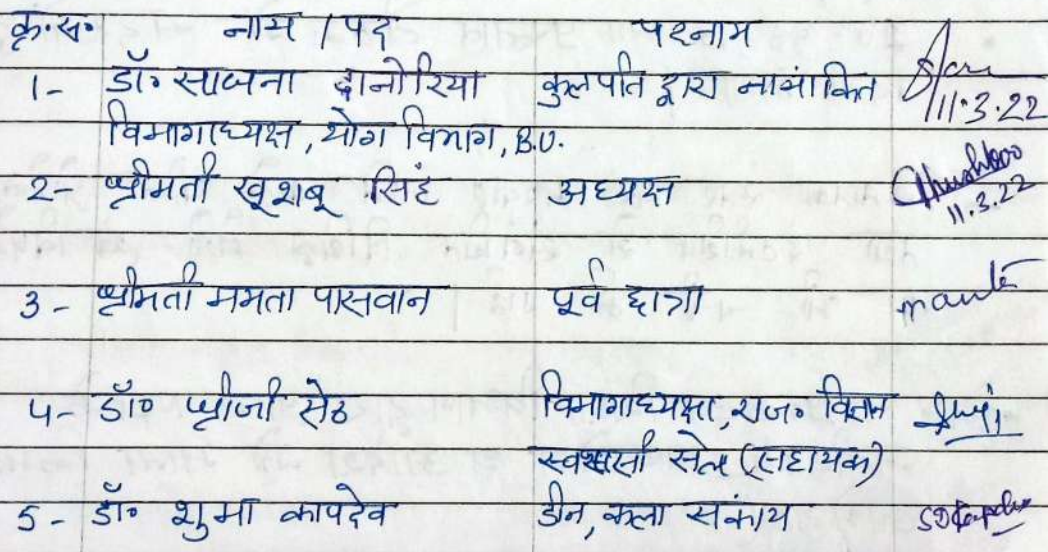 क्र.सं. नाम / पद पदनाम
1- डॉ० साधना दानोरिया कुलपति द्वारा नामांकित
11.3.22
विभागाध्यक्ष, योग विभाग, B.U.
2- श्रीमती खूशबू सिंह अध्यक्ष Khushboo
11.3.22
3- श्रीमती ममता पासवान पूर्व छात्रा
4- डॉ० श्रीजी सेठ विभागाध्यक्षा, राज० विज्ञान
स्वशासी सेल (सहायक)
5- डॉ० शुभा कापदेव डीन, कला संकाय